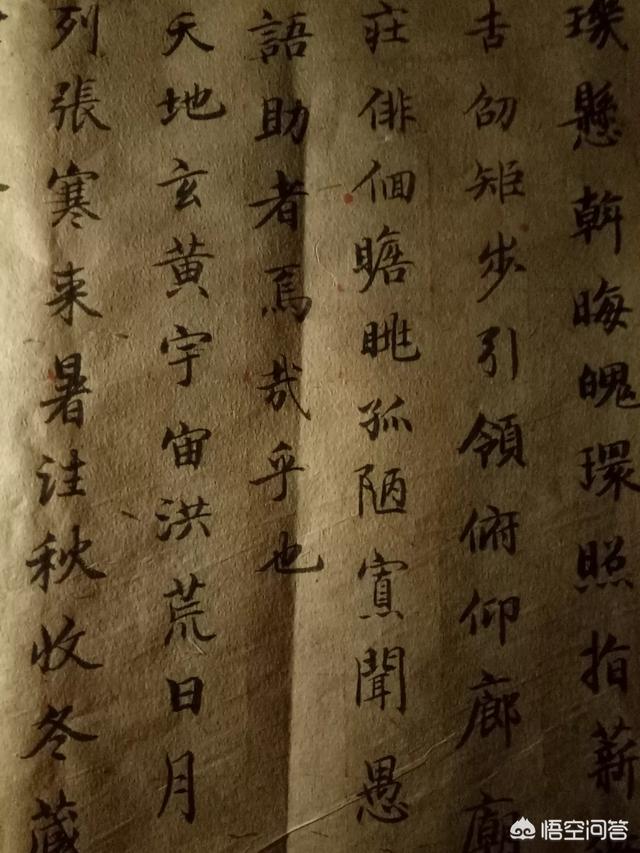 璣懸斡晦魄環照指薪
吉劭矩步引領俯仰廊廟
莊俳佪瞻眺孤陋寡聞愚
語助者焉哉乎也
天地玄黄宇宙洪荒日月
列張寒来暑往秋收冬藏
悟空问答